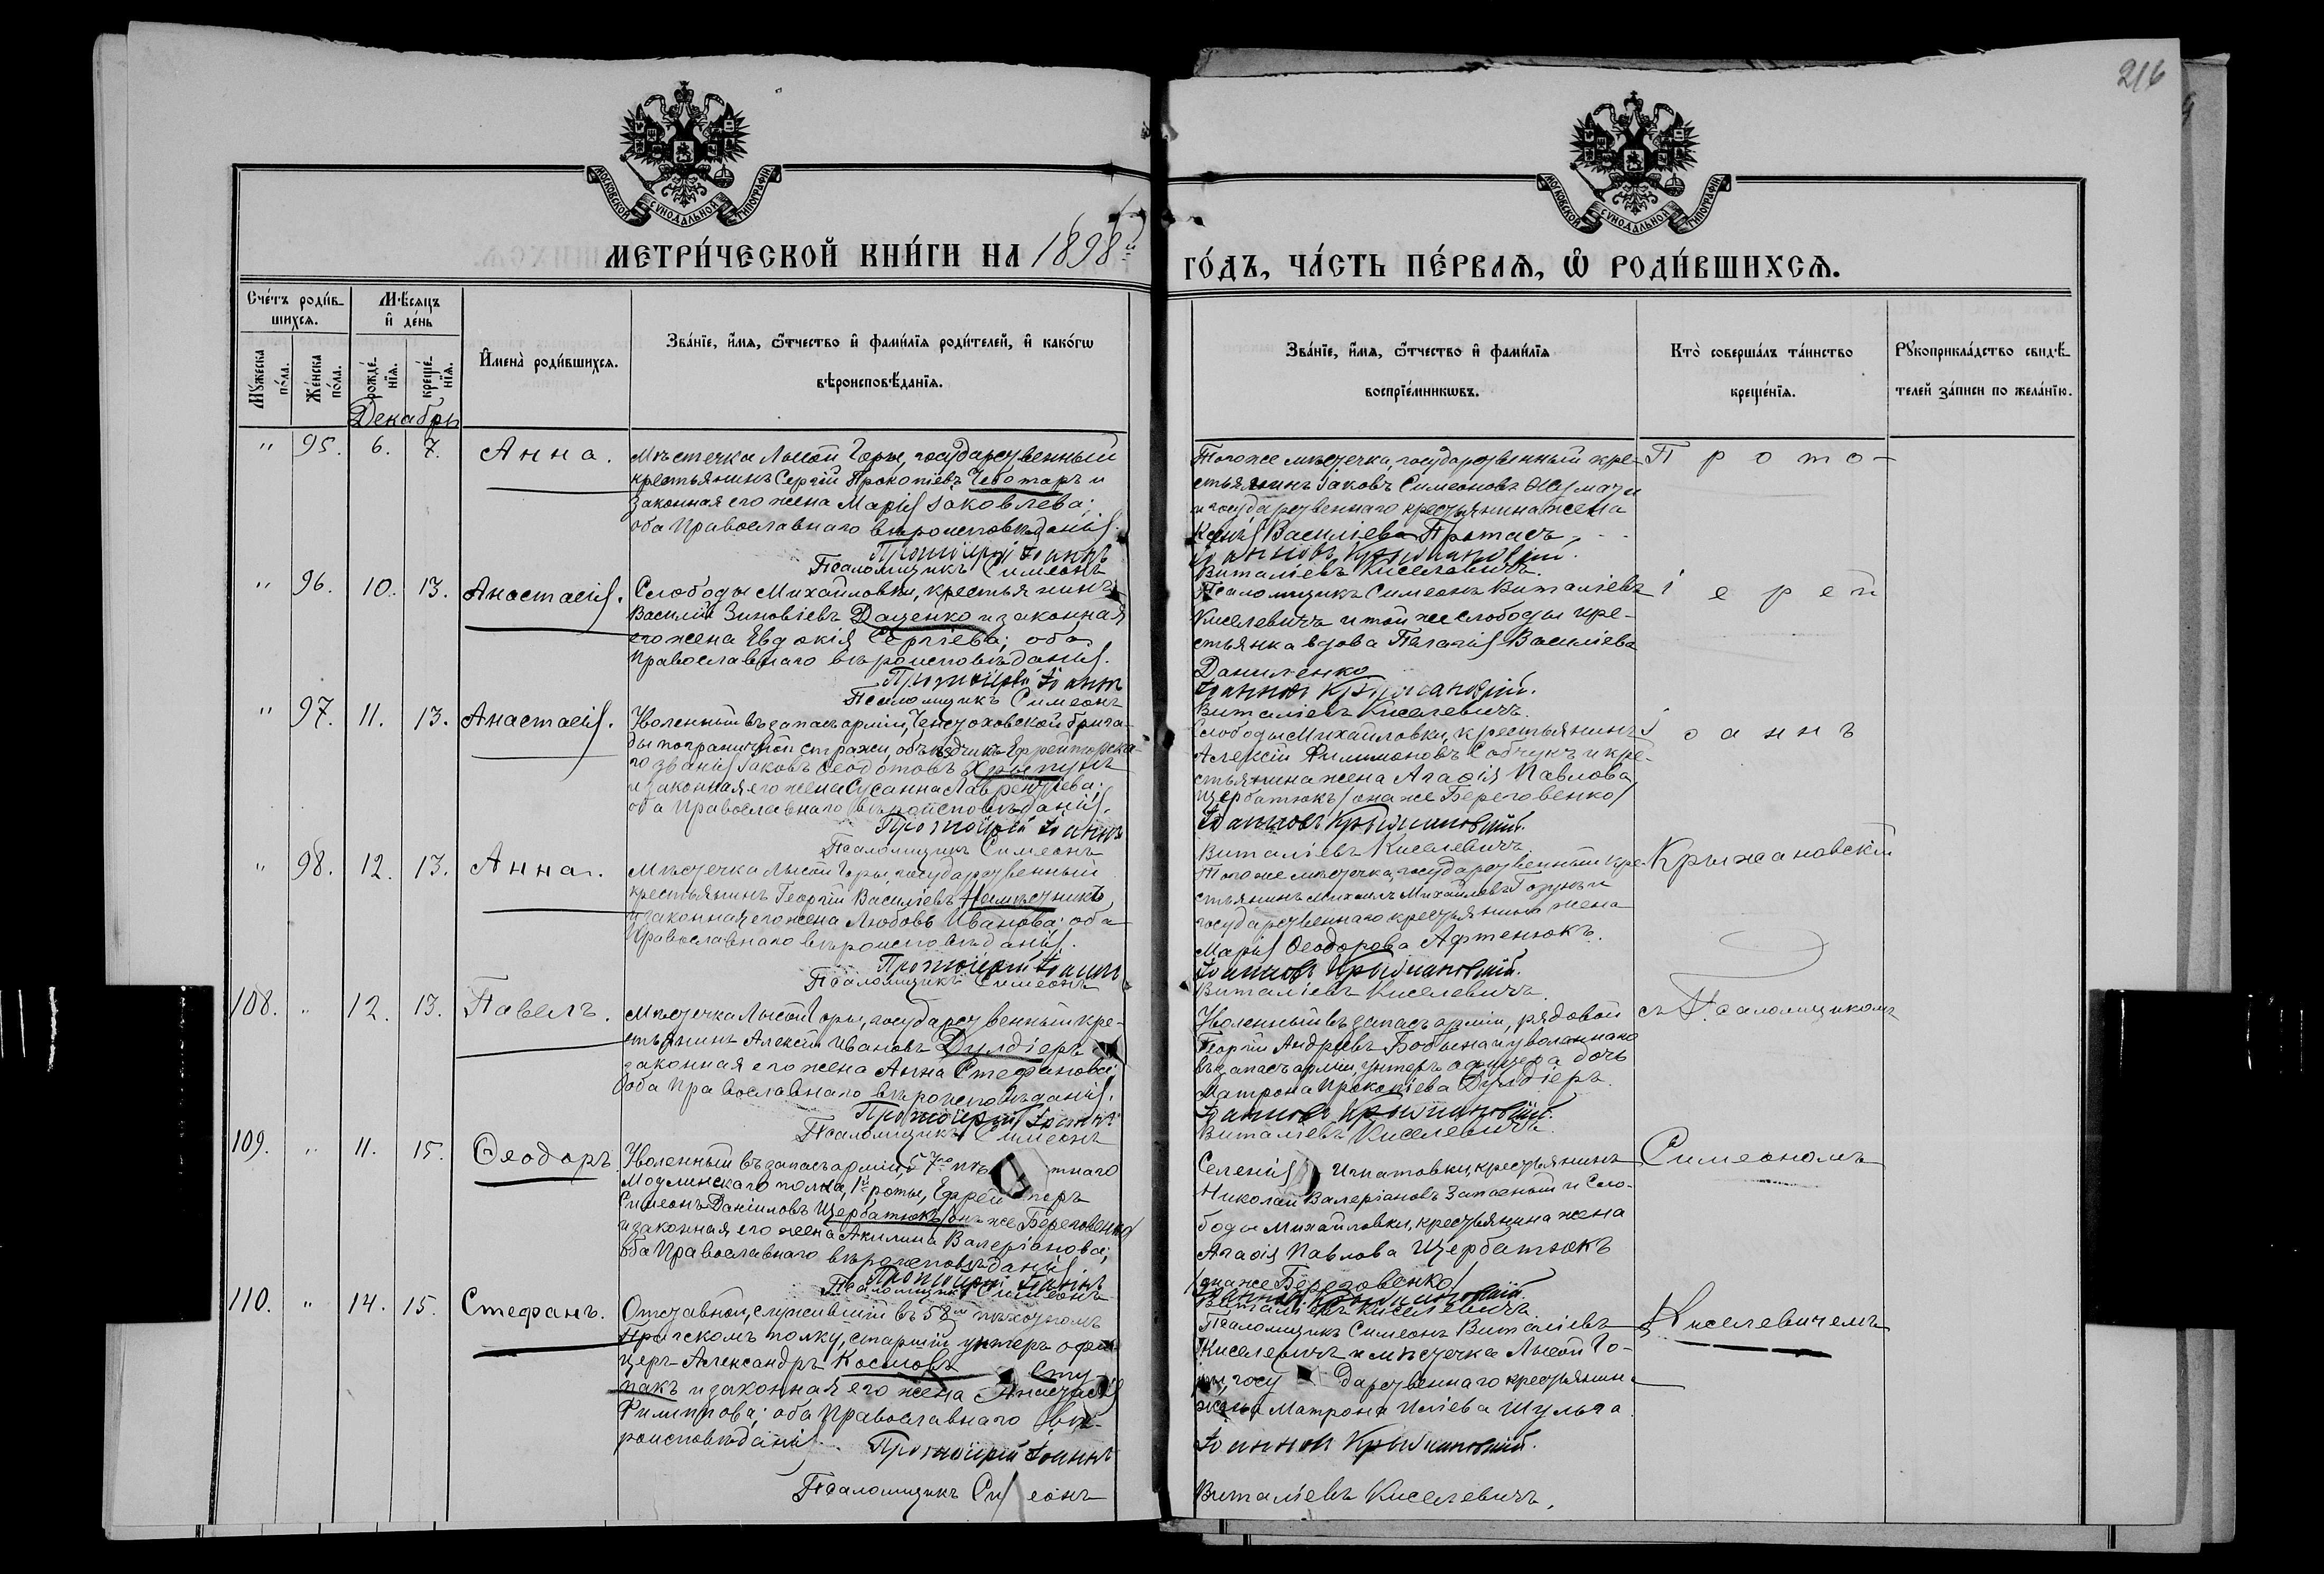 216
МОСКОВСКОЙ СѴНОДАЛЬНОЙ ТИПОГРАФІИ
МОСКОВСКОЙ СѴНОДАЛЬНОЙ ТИПОГРАФІИ
МЕТРИ́ЧЕСКОЙ КНИ́ГИ НА 1898й
ГО́ДЪ, ЧА́СТЬ ПЕ́РВАЯ, Ѡ҆ РОДИ́ВШИХСЯ.
Сче́тъ роди́в-
шихся.
Му́жеска
по́ла.
Же́нска
по́ла.
Мѣ́сяцъ
и҆ де́нь
рожде́-
нїя.
креще́-
нїя.
Декабрь
И҆мена̀ роди́вшихся.
Зва́нїе, и҆́мя, ѻ҆́тчество и҆ фами́лїя роди́телей, и҆ како́гѡ
вѣроисповѣ́данїя.
Зва́нїе, и҆́мя, ѻ҆́тчество и҆ фами́лїя
воспрїе́мникѡвъ.
Кто̀ соверша́лъ та́инство
креще́нїя.
Рукоприкла́дство свидѣ́-
телей за́писи по жела́нїю.
" 95. 6. 7. Анна.
Мѣстечка Лысой Горы, государственный
крестьянинъ Сергій Прокопіевъ Чеботаръ и
законная его жена Марія Іаковлева;
оба Православнаго вѣроисповѣданія.
Протоіерей Іоаннъ
Псаломщикъ Симеонъ
Того же мѣстечка, государственный кре-
стьянинъ Іаковъ Симеоновъ
и государственнаго крестьянина жена
Ксенія Василіева Протасъ.
Іоанновъ Крыжановскій.
Виталіевъ Киселевичъ.
Прото-
" 96. 10. 13. Анастасія.
Слободы Михайловки, крестьянинъ
Василій Зиновіевъ Даценко и законная
его жена Евдокія Сергіева; оба
Православнаго вѣроисповѣданія.
Протоіерей Іоаннъ
Псаломщикъ Симеонъ
Псаломщикъ Симеонъ Виталіевъ
Киселевичъ и той же слободы кре-
стьянка вдова Пелагія Василіева
Даниленко
Іоанновъ Крыжановскій.
Виталіевъ Киселевичъ.
іерей
" 97. 11. 13. Анастасія.
Уволенный въ запасъ арміи, Ченстоховской брига-
ды пограничной стражи, объѣздчикъ Ефрейторска-
го званія Іаковъ Ѳеодотовъ Хрыпунъ
и законная его жена Сусанна Лаврентіева;
оба Православнаго вѣроисповѣданія.
Протоіерей Іоаннъ
Псаломщикъ Симеонъ
Слободы Михайловки, крестьянинъ
Алексій Филимоновъ Собчукъ и кре-
стьянина жена Агаѳія Павлова
Щербатюкъ /она же Береговенко/
Іоанновъ Крыжановскій.
Виталіевъ Киселевичъ.
Іоаннъ
" 98. 12. 13. Анна.
Мѣстечка Лысой Горы, государственный
крестьянинъ Георгій Василіевъ Намѣстникъ
и законная его жена Любовь Иванова; оба
Православнаго вѣроисповѣданія.
Протоіерей Іоаннъ
Псаломщикъ Симеонъ
Того же мѣстечка, государственный кре-
стьянинъ Михаилъ Михайловъ и
государственнаго крестьянина жена
Марія Ѳеодорова Афтенюкъ.
Іоанновъ Крыжановскій.
Виталіевъ Киселевичъ.
Крыжановскій
108. " 12. 13. Павелъ.
Мѣстечка Лысой Горы, государственный кре-
стьянинъ Алексій Ивановъ Дулдіеръ и
законная его жена Анна Стефанова;
оба Православнаго вѣроисповѣданія.
Протоіерей Іоаннъ
Псаломщикъ Симеонъ
Уволенный въ запасъ арміи, рядовой
Георгій Андреевъ и уволеннаго
въ запасъ арміи, унтеръ офицера дочь
Матрона Прокопіева Дулдіеръ.
Іоанновъ Крыжановскій.
Виталіевъ Киселевичъ.
съ Псаломщикомъ
109. " 11. 15. Ѳеодоръ.
Уволенный въ запасъ арміи, 57го пѣ тнаго
Модлинскаго полка, роты, Ефрей торъ
Симеонъ Даніиловъ Щербатюкъ /онъ же Береговенко/
и законная его жена Акилина Валеріанова;
оба Православнаго вѣроисповѣданія.
Протоіерей Іоаннъ
Псаломщикъ Симеонъ
Селенія Игнатовки, крестьянинъ
Николай Валеріановъ Запасный и Сло-
боды Михайловки, крестьянина жена
Агаѳія Павлова Щербатюкъ
/она же Береговенко/
Іоанновъ Крыжановскій.
Виталіевъ Киселевичъ
Симеономъ
110. " 14. 15. Стефанъ.
Отставной, служившій въ 58м пѣхотномъ
Прагскомъ полку, старшій унтеръ офи-
церъ Александръ Космовъ Сту-
пакъ и законная его жена Анастасія
Филиппова; оба Православнаго вѣ-
роисповѣданія.
Протоіерей Іоаннъ
Псаломщикъ Симеонъ
Псаломщикъ Симеонъ Виталіевъ
Киселевичъ и мѣстечка Лысой Го-
ры, госу дарственнаго крестьянина
жена Матрона Иліева Шульга
Іоанновъ Крыжановскій.
Виталіевъ Киселевичъ.
Киселевичемъ